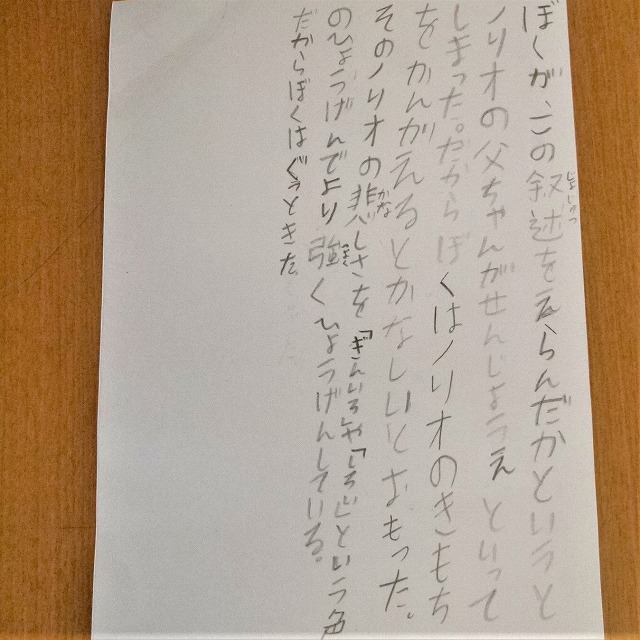 ぼくが、この叙述をえらんだかというと
ノリオの父ちゃんがせんじょうえといって
しまった。だからぼくはノリオのきもち
をかんがえるとかなしいとおもった。
そのノリオの悲しさを「ぎんいろ」や「しろい」という色
のひょうげんでより強くひょうげんしている。
だからぼくはぐっときた。